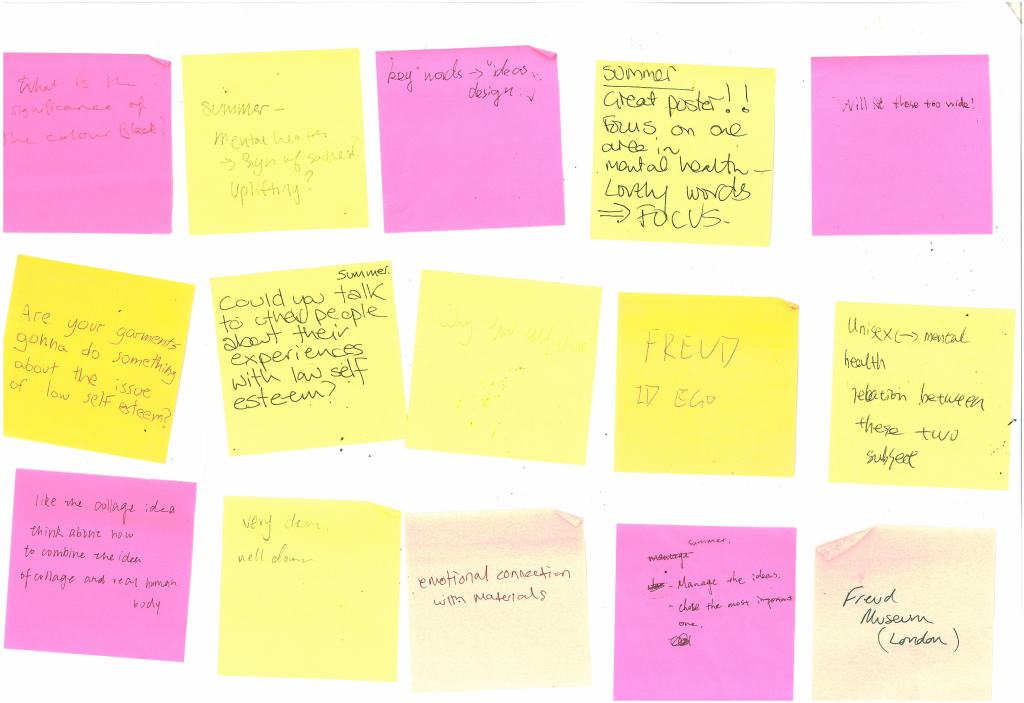 What is the
significance of
the colour Black?
Summer –
Mental health
→ sign of sadness?
uplifting?
"key" words → "ideas"
design.
SUMMER
Great poster!!
Focus on one
area in
mental health –
Lovely words
⇒ FOCUS.
Will it these too wide!
Are your garments
gonna do something
about the issue
of low self esteem?
Summer.
Could you talk
to other people
about their
experiences
with low self
esteem?
Why low self esteem?
FREUD
ID EGO
Unisex → mental
health
relation between
these two
subject
like the collage idea
think about how
to combine the idea
of collage and real human
body
very clear,
well down
emotional connection
with materials
summer.
manage
- Manage the ideas.
- chose the most important
one.
Freud
Museum
(London)